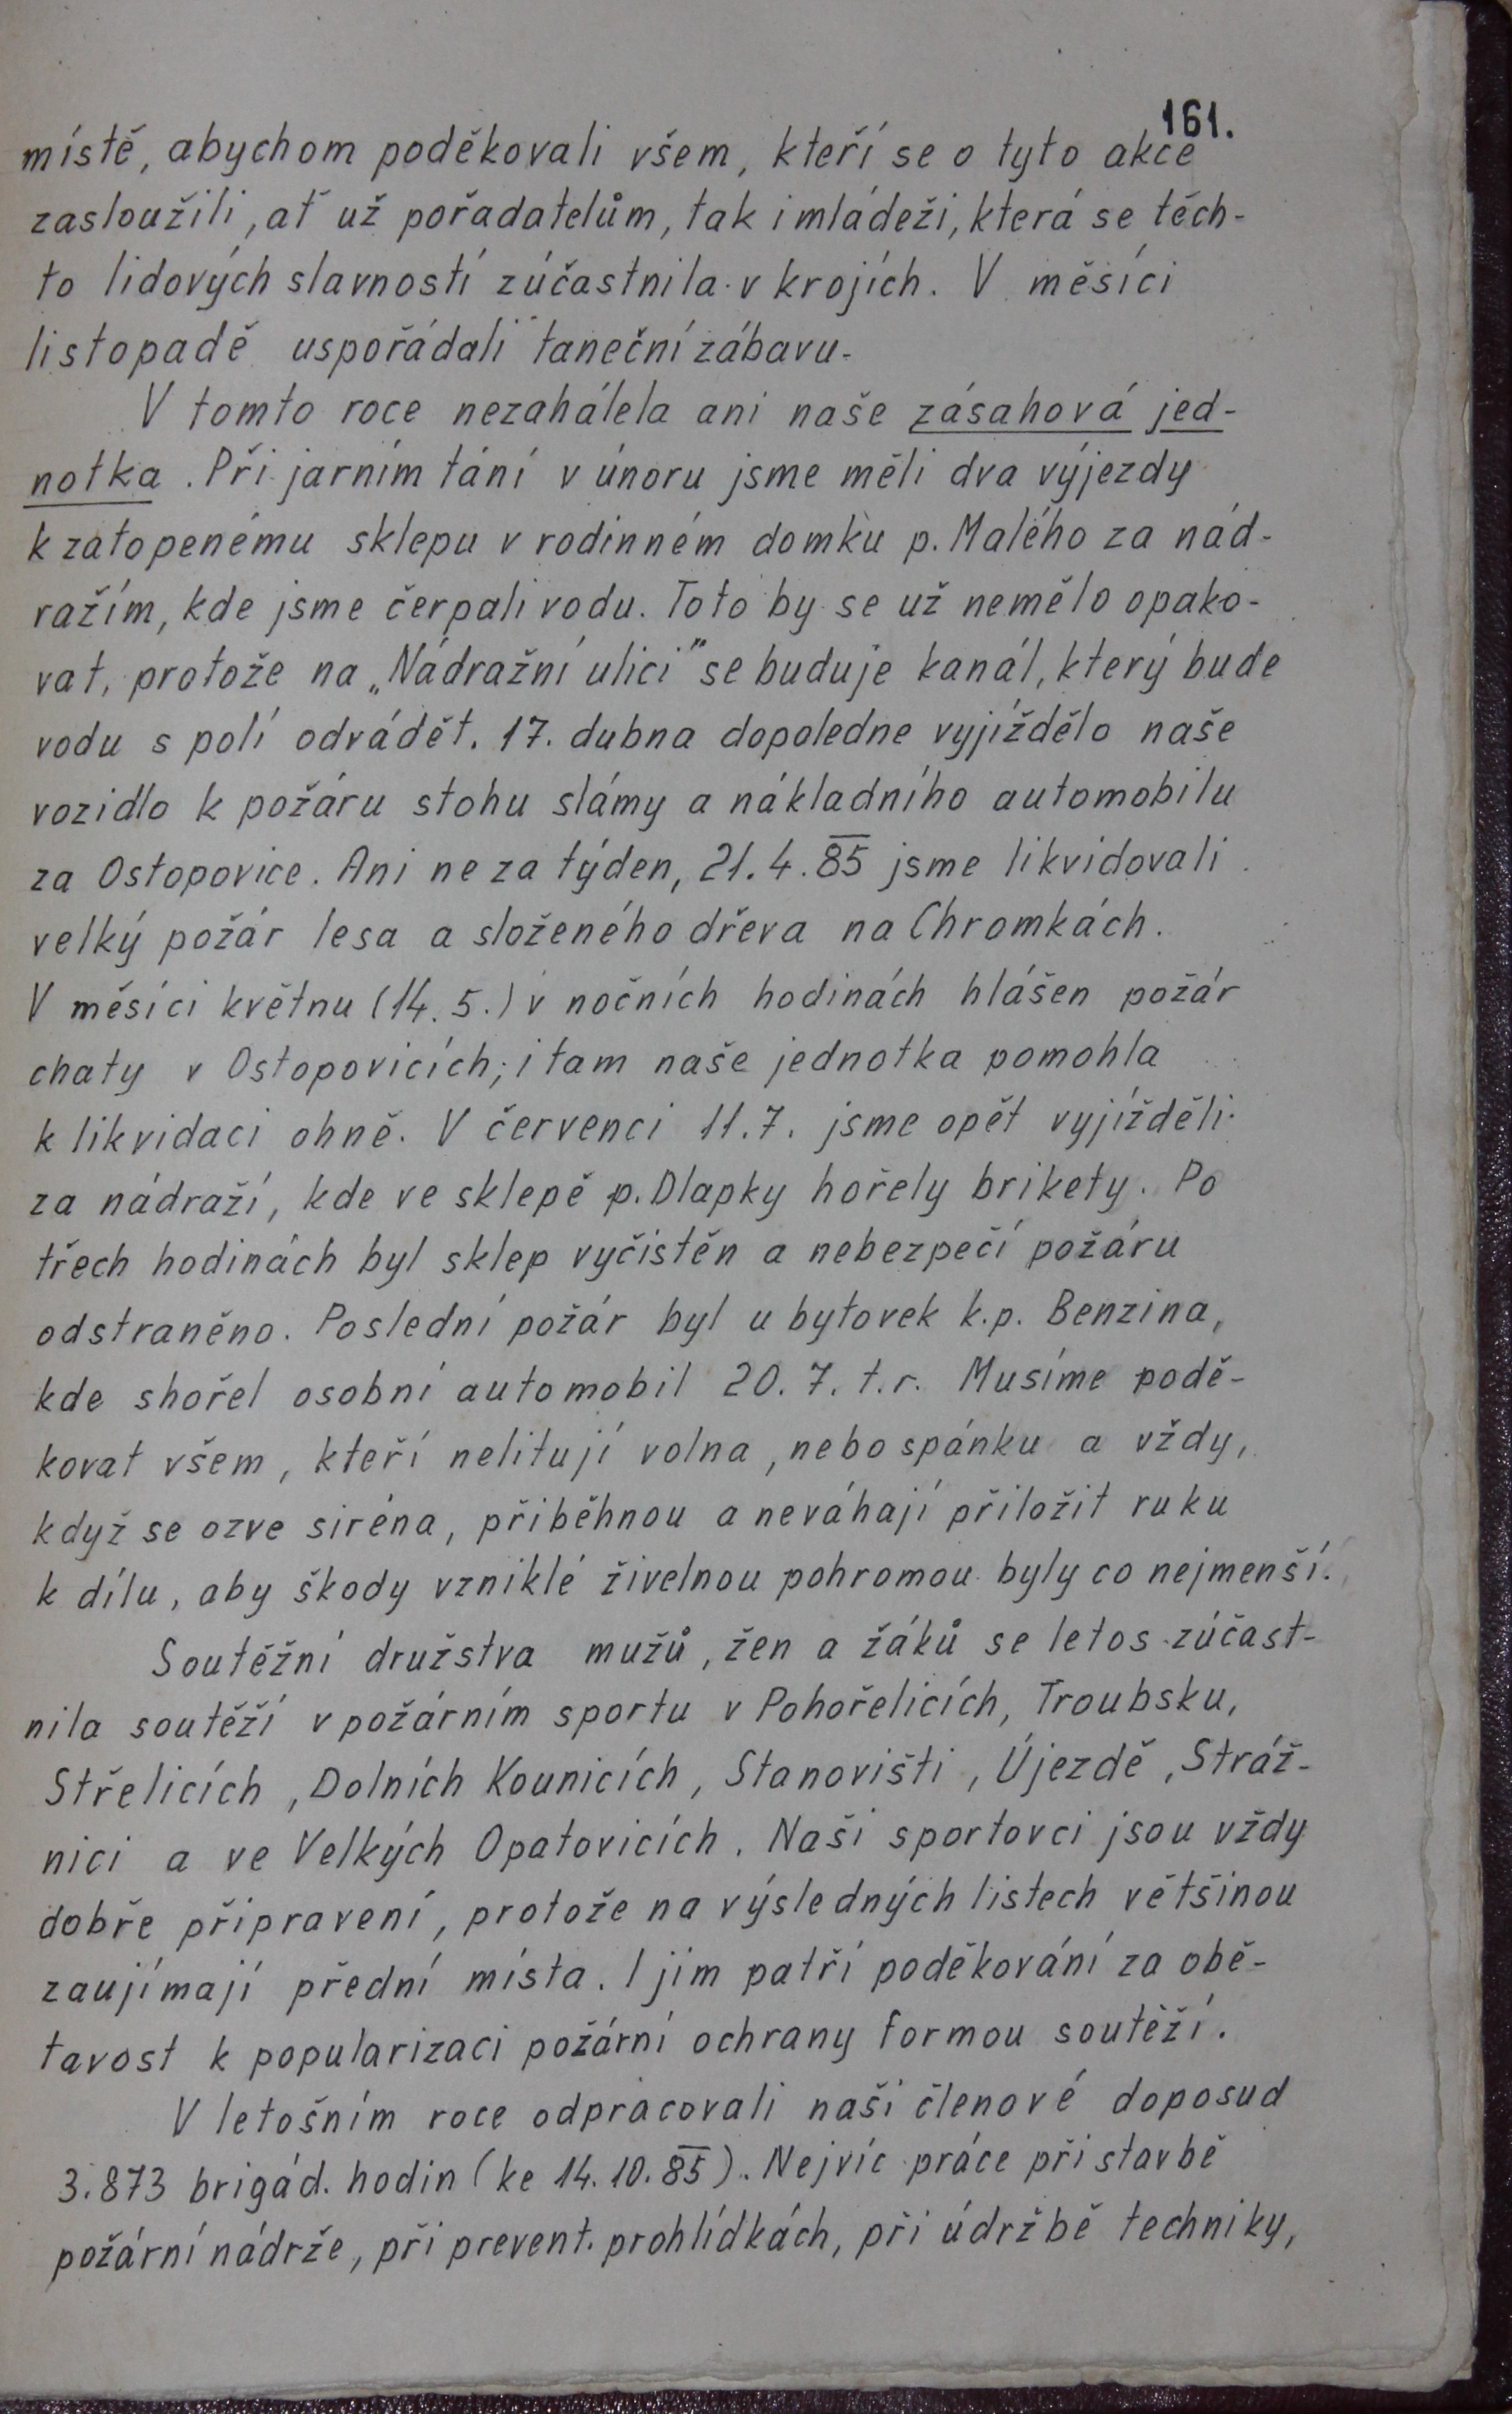 161.
místě, abychom poděkovali všem, kteří se o tyto akce
zasloužili, ať už pořadatelům, tak i mládeži, která se těch-
to lidových slavností zúčastnila v krojích. V měsíci
listopadě uspořádali taneční zábavu.
V tomto roce nezahálela ani naše zásahová jed-
notka. Při jarním tání v únoru jsme měli dva výjezdy
k zatopenému sklepu v rodinném domku p. Malého za nád-
ražím, kde jsme čerpali vodu. Toto by se už nemělo opako-
vat, protože na „Nádražní ulici" se buduje kanál, který bude
vodu s polí odvádět. 17. dubna dopoledne vyjíždělo naše
vozidlo k požáru stohu slámy a nákladního automobilu
za Ostopovice. Ani ne za týden, 21. 4. 85 jsme likvidovali
velký požár lesa a složeného dřeva na Chromkách.
V měsíci květnu (14. 5.) v nočních hodinách hlášen požár
chaty v Ostopovicích; i tam naše jednotka pomohla
k likvidaci ohně. V červenci 11. 7. jsme opět vyjížděli
za nádraží, kde ve sklepě p. Dlapky hořely brikety. Po
třech hodinách byl sklep vyčistěn a nebezpečí požáru
odstraněno. Poslední požár byl u bytovek k.p. Benzina,
kde shořel osobní automobil 20. 7. t.r. Musíme podě-
kovat všem, kteří nelitují volna, nebo spánku a vždy,
když se ozve siréna, přiběhnou a neváhají přiložit ruku
k dílu, aby škody vzniklé živelnou pohromou byly co nejmenší.
Soutěžní družstva mužů, žen a žáků se letos zúčast-
nila soutěží v požárním sportu v Pohořelicích, Troubsku,
Střelicích, Dolních Kounicích, Stanovišti, Újezdě, Stráž-
nici a ve Velkých Opatovicích. Naši sportovci jsou vždy
dobře připravení, protože na výsledných listech většinou
zaujímají přední místa. I jim patří poděkování za obě-
tavost k popularizaci požární ochrany formou soutěží.
V letošním roce odpracovali naši členové doposud
3.873 brigád. hodin (ke 14. 10. 85). Nejvíc práce při stavbě
požární nádrže, při prevent. prohlídkách, při údržbě techniky,